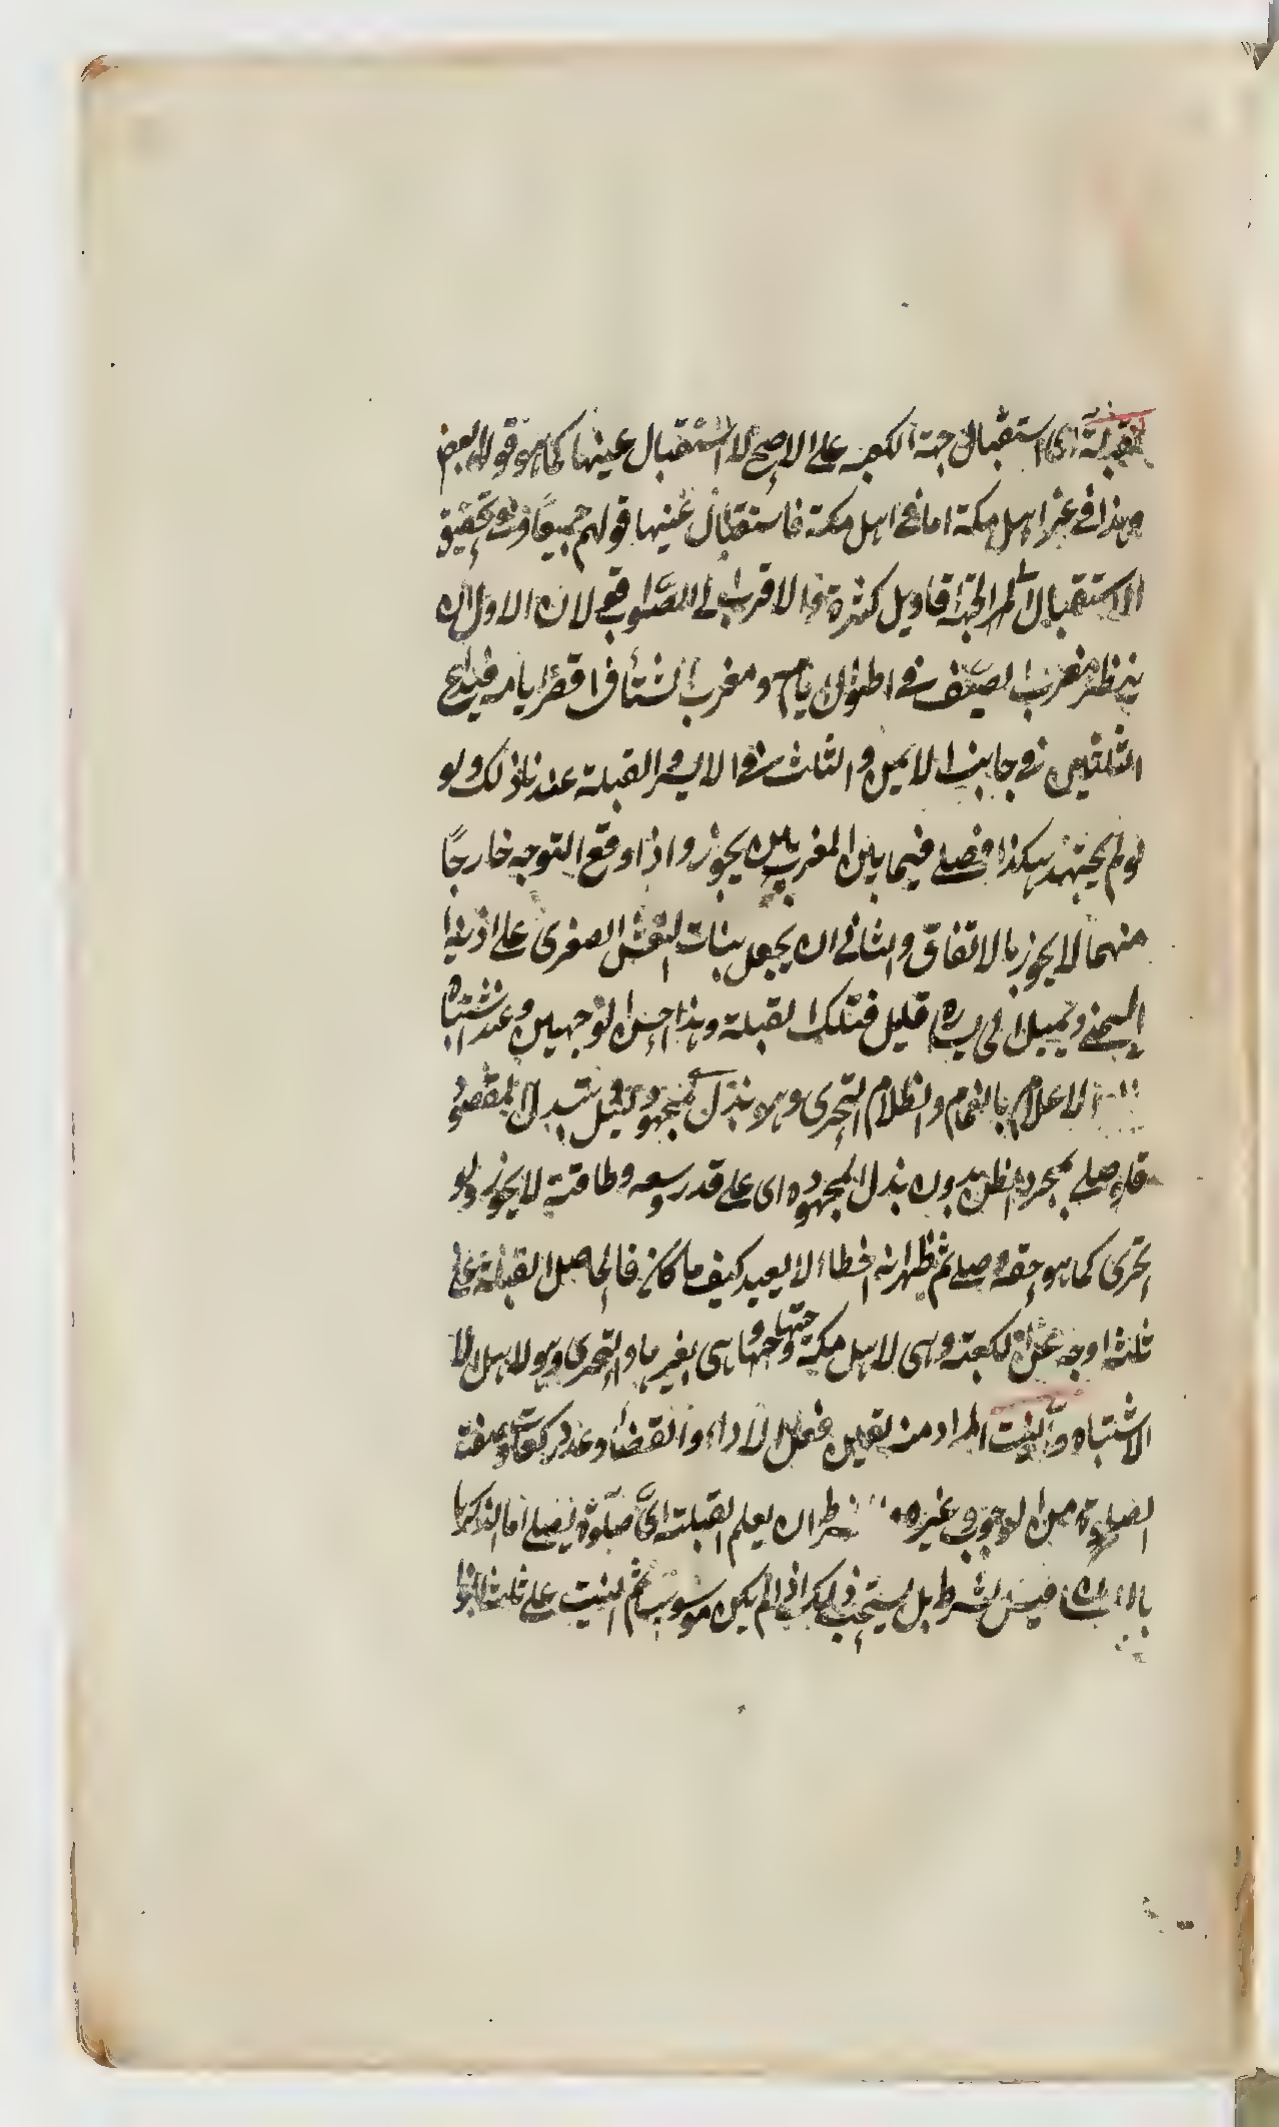 القبلة اى استقبال جهة الكعبه على الاصح لا استقبال عينها كما هو قول البعض
وهذا فى غير اهل مكة اما فى اهل مكة فاستقبال عينها قولهم جميعًا وفى تحقيق
الاستقبال الى الجهة اقاويل كثيرة والاقرب الى الصواب قولان الاول ان
ينظر مغرب الصيف فى اطول ايامه ومغرب الشتاء فى اقصر ايامه فيدع
الثلثين فى جانب الايمن والثلث فى الايسر والقبلة عند ذلك ولو
لو لم يجتهد هكذا فصلى فيما بين المغربين يجوز واذا وقع التوجه خارجًا
منهما لا يجوز بالاتفاق والثانى ان يجعل بنات النعش الصغرى على اذنه
اليمنى ويميل الى يساره قليل فتلك القبلة وهذا احسن الوجهين وعند اشتباه
الاعلام بالغمام والظلام التحرى وهو بذل المجهود لنيل المقصود
فلو صلى بمجرد الظن بدون بذل المجهوده اى على قدر وسعه وطاقته لا يجوز ولو
تحرى كما هو حقه وصلى ثم ظهر انه اخطاء لا يعيد كيف ما كان فالحاصل القبلة على
ثلثه اوجه عين الكعبته وهى لاهل مكة وجهتها وهى لغيرها والتحرى وهو لاهل الا
الاشتباه والنيت المراد منه تعين فعل الاداء والقضاء وعدد ركعات وصفت
الصلوة من الوجوب وغيره ان يعلم القبلته اىّ صلوة يصلى اما الذكر بها
باللسان فليس بشرط بل يستحب ذلك ان لم يكن موسوس ثم النيت على ثلث